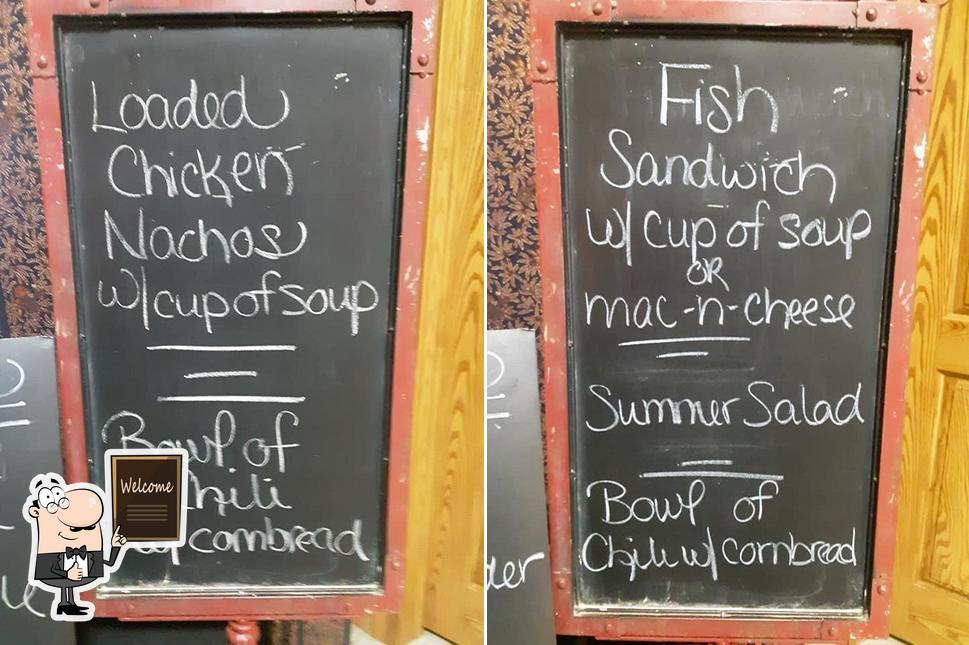 Loaded
Chicken
Nachos
w/cup of soup
Bowl of
Chili
w/ cornbread
Welcome
Fish
Sandwich
w/ cup of soup
OR
mac-n-cheese
Summer Salad
Bowl of
Chili w/ cornbread